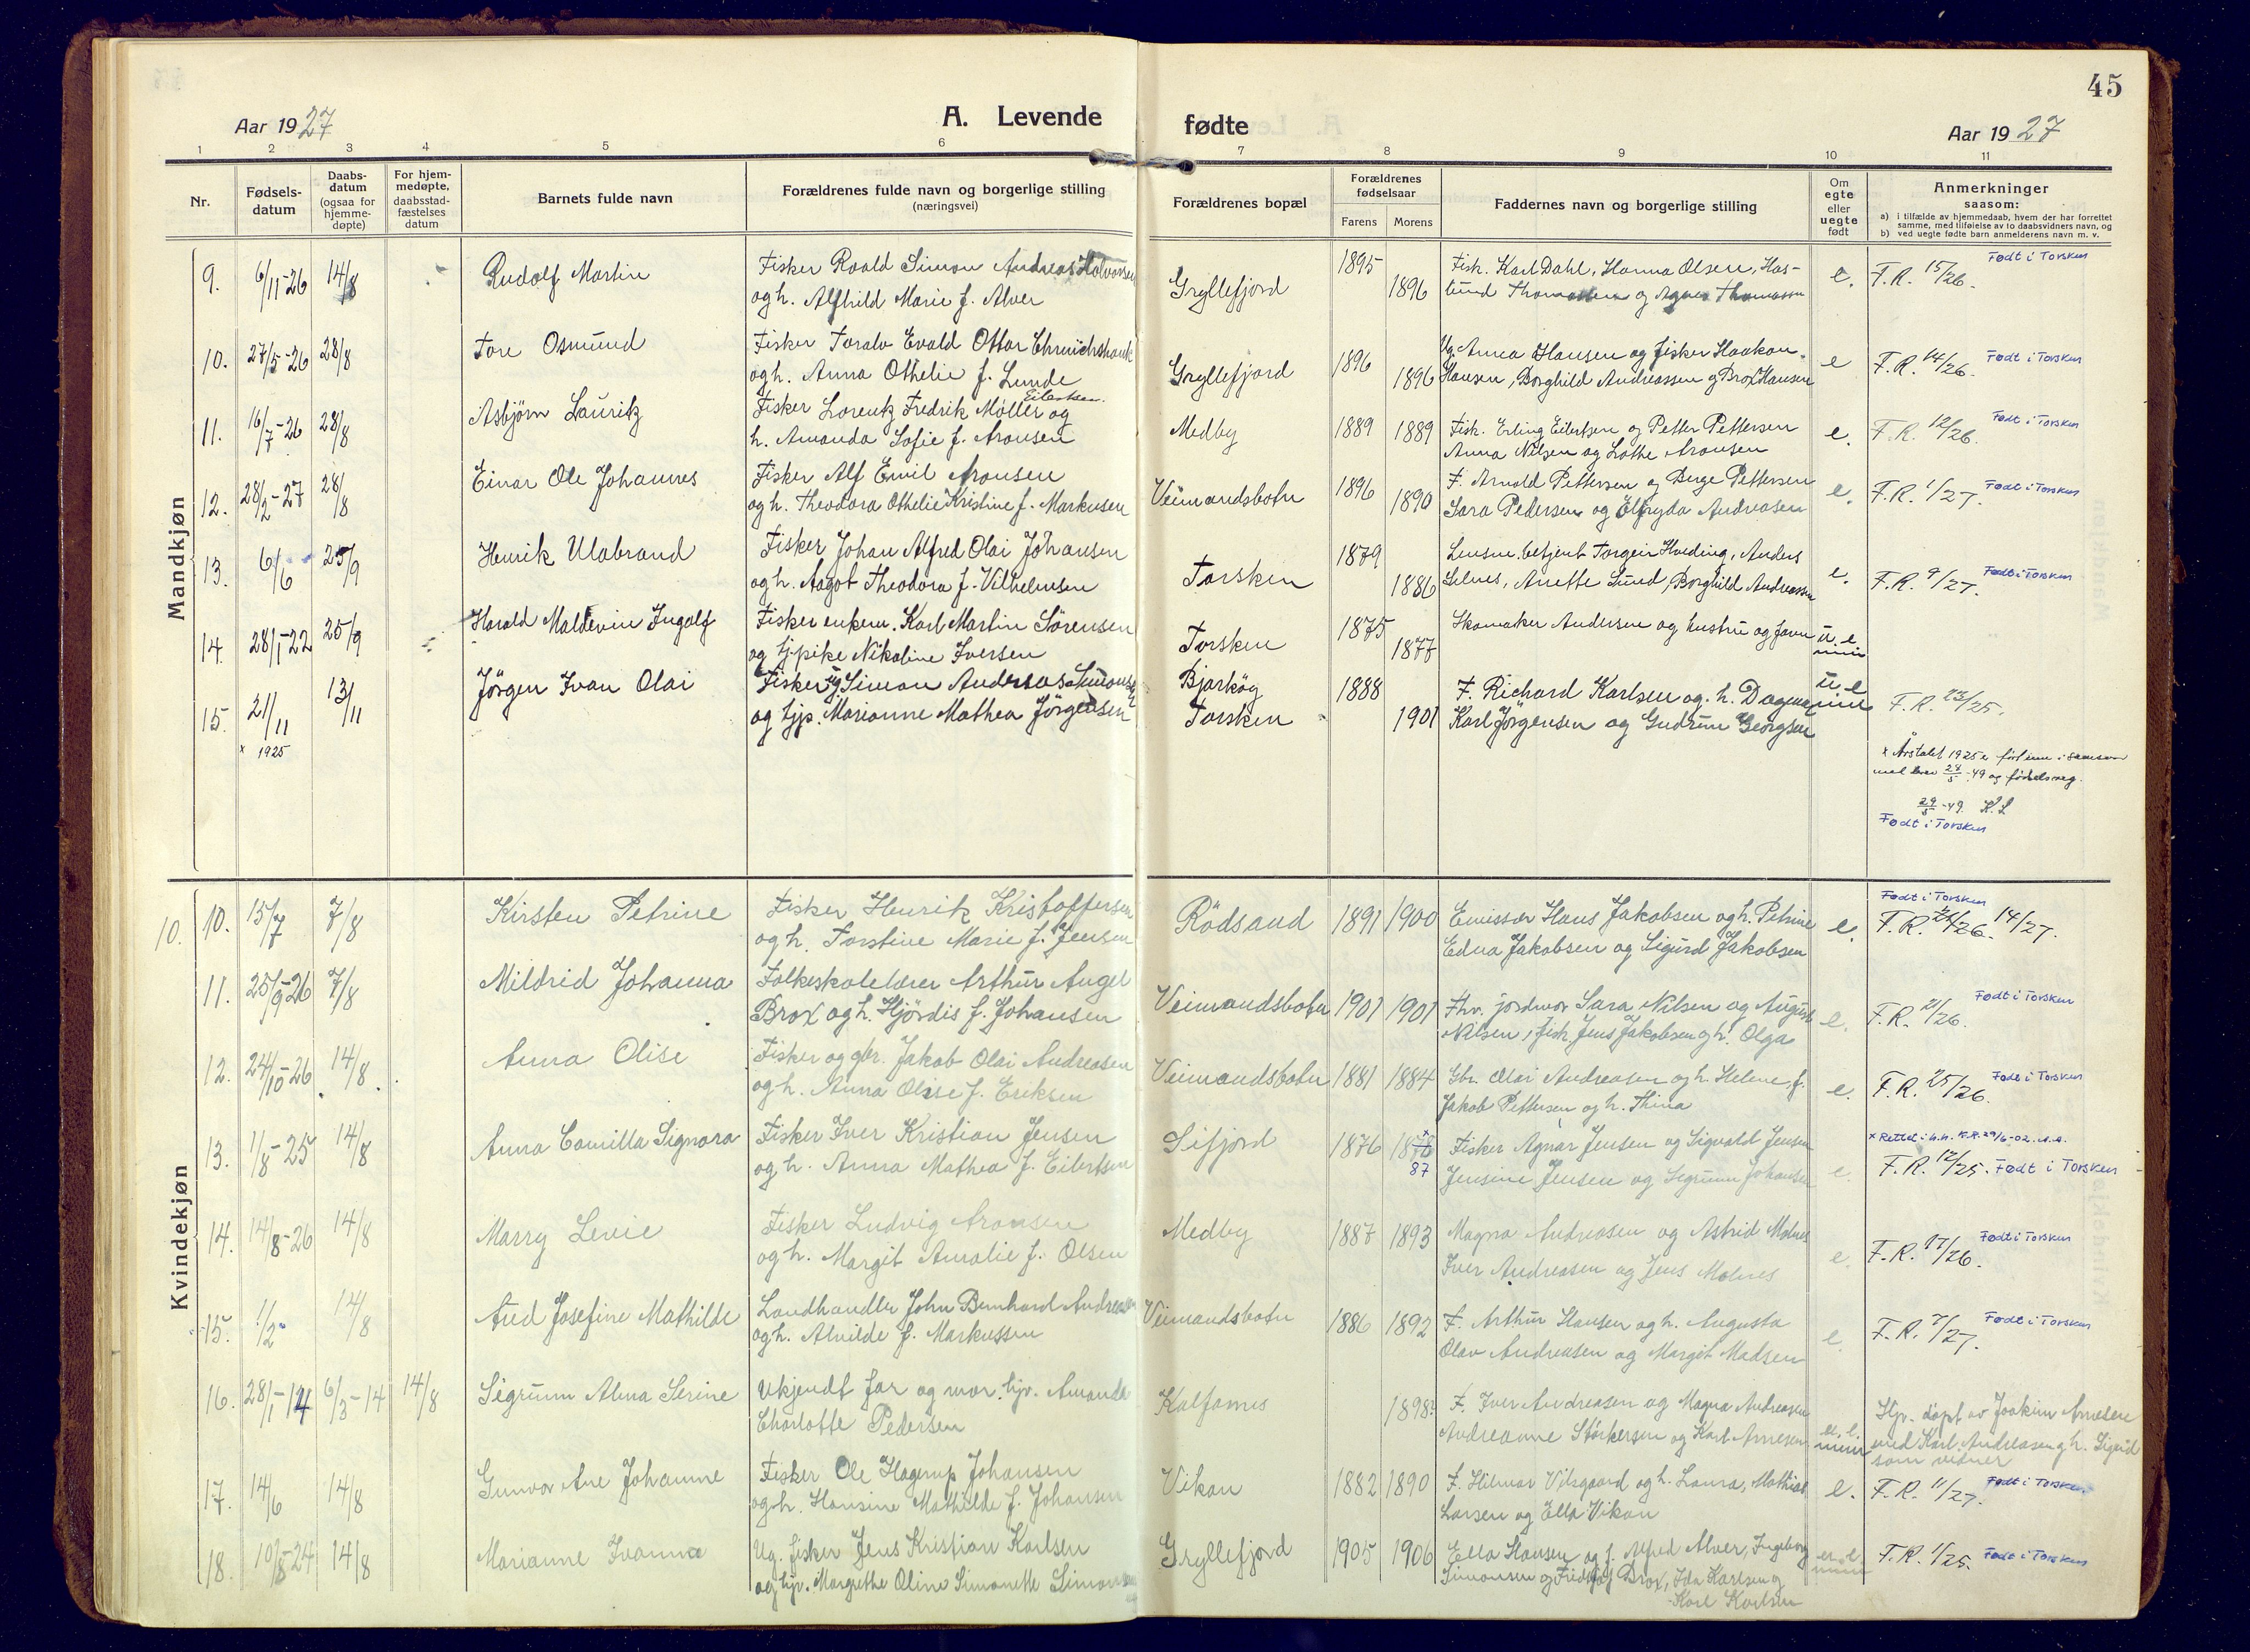 45
Aar 1927
A. Levende fødte
Aar 1927
1 2 3 4 5 6 7 8 9 10 11
Nr.
Fødsels-
datum
Daabs-
datum
(ogsaa for
hjemme-
døpte)
For hjem-
medøpte,
daabsstad-
fæstelses
datum
Barnets fulde navn
Forældrenes fulde navn og borgerlige stilling
(næringsvei)
Forældrenes bopæl
Forældrenes
fødselsaar
Farens Morens
Faddernes navn og borgerlige stilling
Om
egte
eller
uegte
født
Anmerkninger
saasom:
a) i tilfælde av hjemmedaab, hvem der har forrettet
samme, med tilføielse av to daabsvidners navn, og
b) ved uegte fødte barn anmelderens navn m. v.
Mandkjøn
9. 6/11-26 14/8 Rudolf Martin Fisker Roald Simon Andreas Halvorsen Gryllefjord 1895 1896 Fisk. Karl Dahl, Hanna Olsen, Has- e. F.R. 15/26. Født i Torsken
og h. Alfhild Marie f. Alver tund Thomassen og Agnes Thomassen
10. 27/5-26 28/8 Tore Osmund Fisker Toralv Evald Ottar Gryllefjord 1896 1896 Ug. Anna Hansen og fisker Haakon e F.R. 14/26. Født i Torsken
og h. Anna Othelie f. Lunde Hansen, Borghild Andreassen og Brox Hansen
11. 16/7-26 28/8 Asbjørn Lauritz Fisker Lorentz Fredrik Møller Eilertsen og Medby 1889 1889 Fisk. Erling Eilertsen og Petter Pettersen e. F.R. 12/26. Født i Torsken
h. Amanda Sofie f. Aronsen Anna Nilsen og Lothe Aronsen
12. 28/2-27 28/8 Einar Ole Johannes Fisker Alf Emil Aronsen Veimandsbotn 1896 1890 F. Arnold Pettersen og Berge Pettersen e. F.R. 1/27. Født i Torsken
og h. Theodora Othelie Kristine f. Markusen Sara Pedersen og Elfryda Andreasen
13. 6/6 25/9 Henrik Ulabrand Fisker Johan Alfred Olai Johansen Torsken 1879 1886 Lensm. betjent Torgeir Hveding, Anders e. F.R. 9/27. Født i Torsken
og h. Aagot Theodora f. Vilhelmsen Selnes, Anette Lund, Borghild Andreassen
14. 28/1-22 25/9 Harald Maldevin Ingolf Fisker enkem. Karl Martin Sørensen Torsken 1875 1877 Skomaker Andersen og hustru og u. e.
og tj.pike Nikoline Iversen
15. 21/11 13/11 Jørgen Ivan Olai Fisker ug. Simon Andersas Simonsen Bjarkøy 1888 1901 F. Richard Karlsen og. h. Dagmar u. e. F.R. 23/25.
x 1925 og tjp. Marianne Mathea Jørgensen Torsken Karl Jørgensen og Gudrun Georgsen
x Årstalet 1925 er ført inn i samsvar
med brev 24/5-49 og fødselsreg.
29/5-49. K.L
Født i Torsken
Kvindekjøn
10. 10. 15/7 7/8 Kirsten Petrine Fisker Henrik Kristoffersen Rödsand 1891 1900 Emissær Hans Jakobsen og h. Petrine e. F.R. 14/27. Født i Torsken
og h. Torstine Marie f. Jensen Edna Jakobsen og Sigurd Jakobsen
11. 25/9-26 7/8 Mildrid Johanna Folkeskolelærer Arthur Angel Veimandsbotn 1901 1901 Fhv. jordmor Sara Nilsen og August e. F.R. 21/26. Født i Torsken
Brox og h. Hjördis f. Johansen Nilsen, fisk. Jens Jakobsen og h. Olga
12. 24/10-26 14/8 Anna Olise Fisker og gbr. Jakob Olai Andreasen Veimandsbotn 1881 1884 Gbr. Olai Andreasen og h. Helene, f. e. F.R. 25/26. Født i Torsken
og h. Anna Olise f. Eriksen Jakob Pettersen og h. Thina
13. 1/8-25 14/8 Anna Camilla Signora Fisker Iver Kristian Jensen Sifjord 1876 1878 x 87 Fisker Agnar Jensen og Sigvald Jensen e. F.R. 12/25. Født i Torsken
og h. Anna Mathea f. Eilertsen Jensine Jensen og Segrunn Johansen
14. 14/8-26 14/8 Marry Levie Fisker Ludvig Aronsen Medby 1887 1893 Magna Andreasen og Astrid Molnes e. F.R. 17/26. Født i Torsken
og h. Margit Amalie f. Olsen Iver Andreasen og Jens Molnes
15. 1/2 14/8 Aud Josefine Mathilde Landhandler John Bernhard Andreasen Veimandsbotn 1886 1892 F. Arthur Hansen og h. Augusta e. F.R. 7/27. Født i Torsken
og h. Alvilde f. Markussen Olav Andreasen og Margit Madsen
16. 28/1-14 6/3-14 14/8 Sigrunn Alma Serine Ukjendt far og mor tjv. Amanda Kalfarnes 1898? F. Iver Andreasen og Magna Andreasen Hjv. døpt av Joakim Arnesen
Charlotte Pedersen Andreanne Störkersen og Karl Arnesen med Karl Andreasen og h. Sigrid
som vidner
17. 14/6 14/8 Gunvor Ane Johanne Fisker Ole Hagerup Johansen Vikan 1882 1890 F. Hilmar Vilsgaard og h. Laura, Mathias e. F.R. 11/27. Født i Torsken
og h. Hansine Mathilde f. Johansen Larsen og Ella Vikan
18. 10/8-24 14/8 Marianne Ivanna Ug. fisker Jens Kristian Karlsen Gryllefjord 1905 1906 Ella Hansen og f. Alfred Alver, Ingeborg F.R. 1/25. Født i Torsken
og tjv. Margrethe Oline Simonette Simonsen Simonsen og Fridtjof Brox, Ida Karlsen og
Karl Karlsen